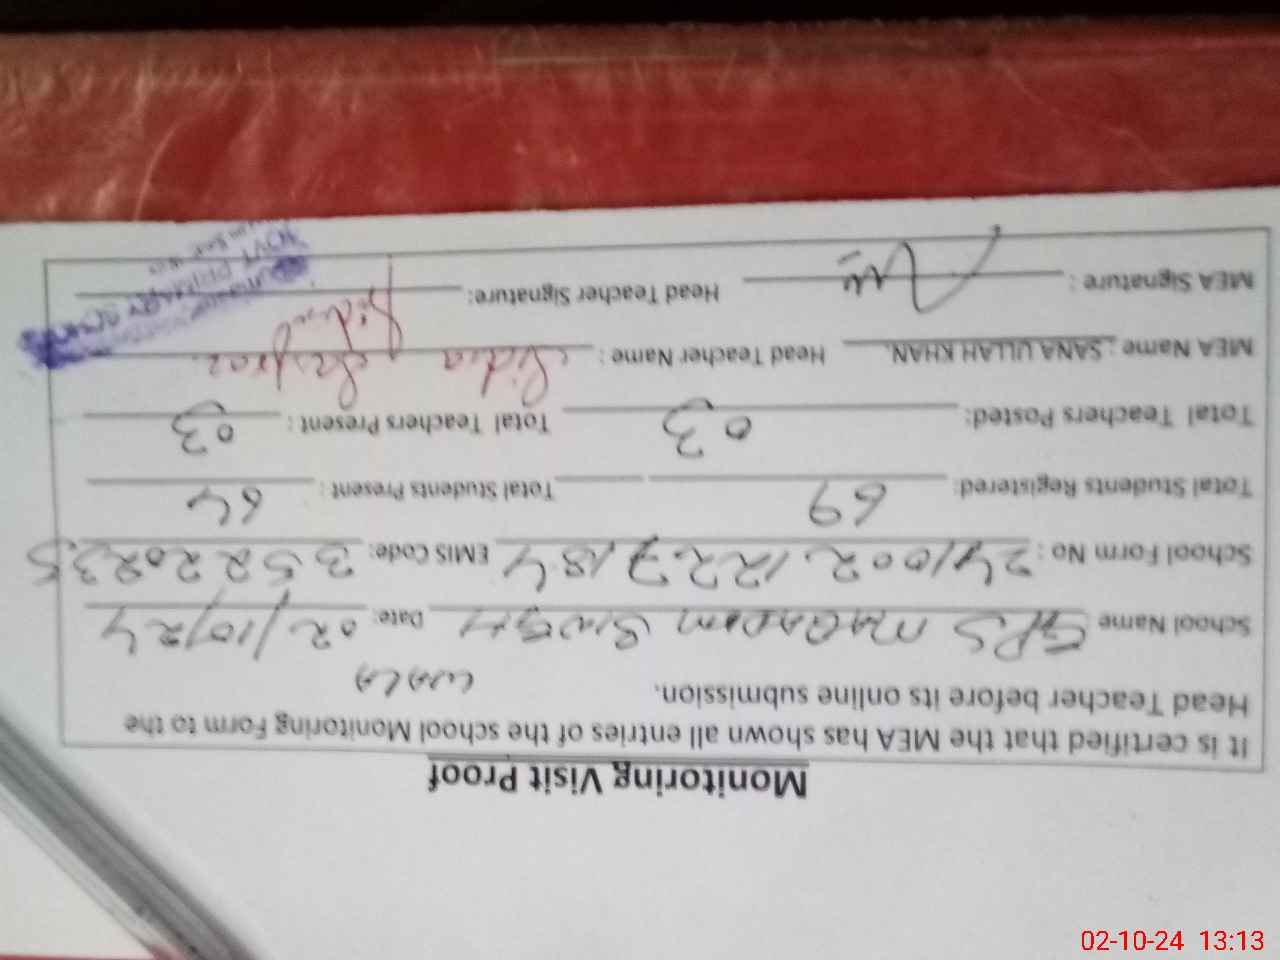 Monitoring Visit Proof
It is certified that the MEA has shown all entries of the school Monitoring Form to the
Head Teacher before its online submission.
WALA
School Name GPS Date: 02/10/24
School Form No: 241002.122.7184 EMIS Code: 35220235
Total Students Registered: 69 Total Students Present: 64
Total Teachers Posted: 03 Total Teachers Present: 03
MEA Name: SANA ULLAH KHAN. Head Teacher Name: Sidra Sarfraz.
MEA Signature: Head Teacher Signature:
GOVT PRIMARY
02-10-24 13:13